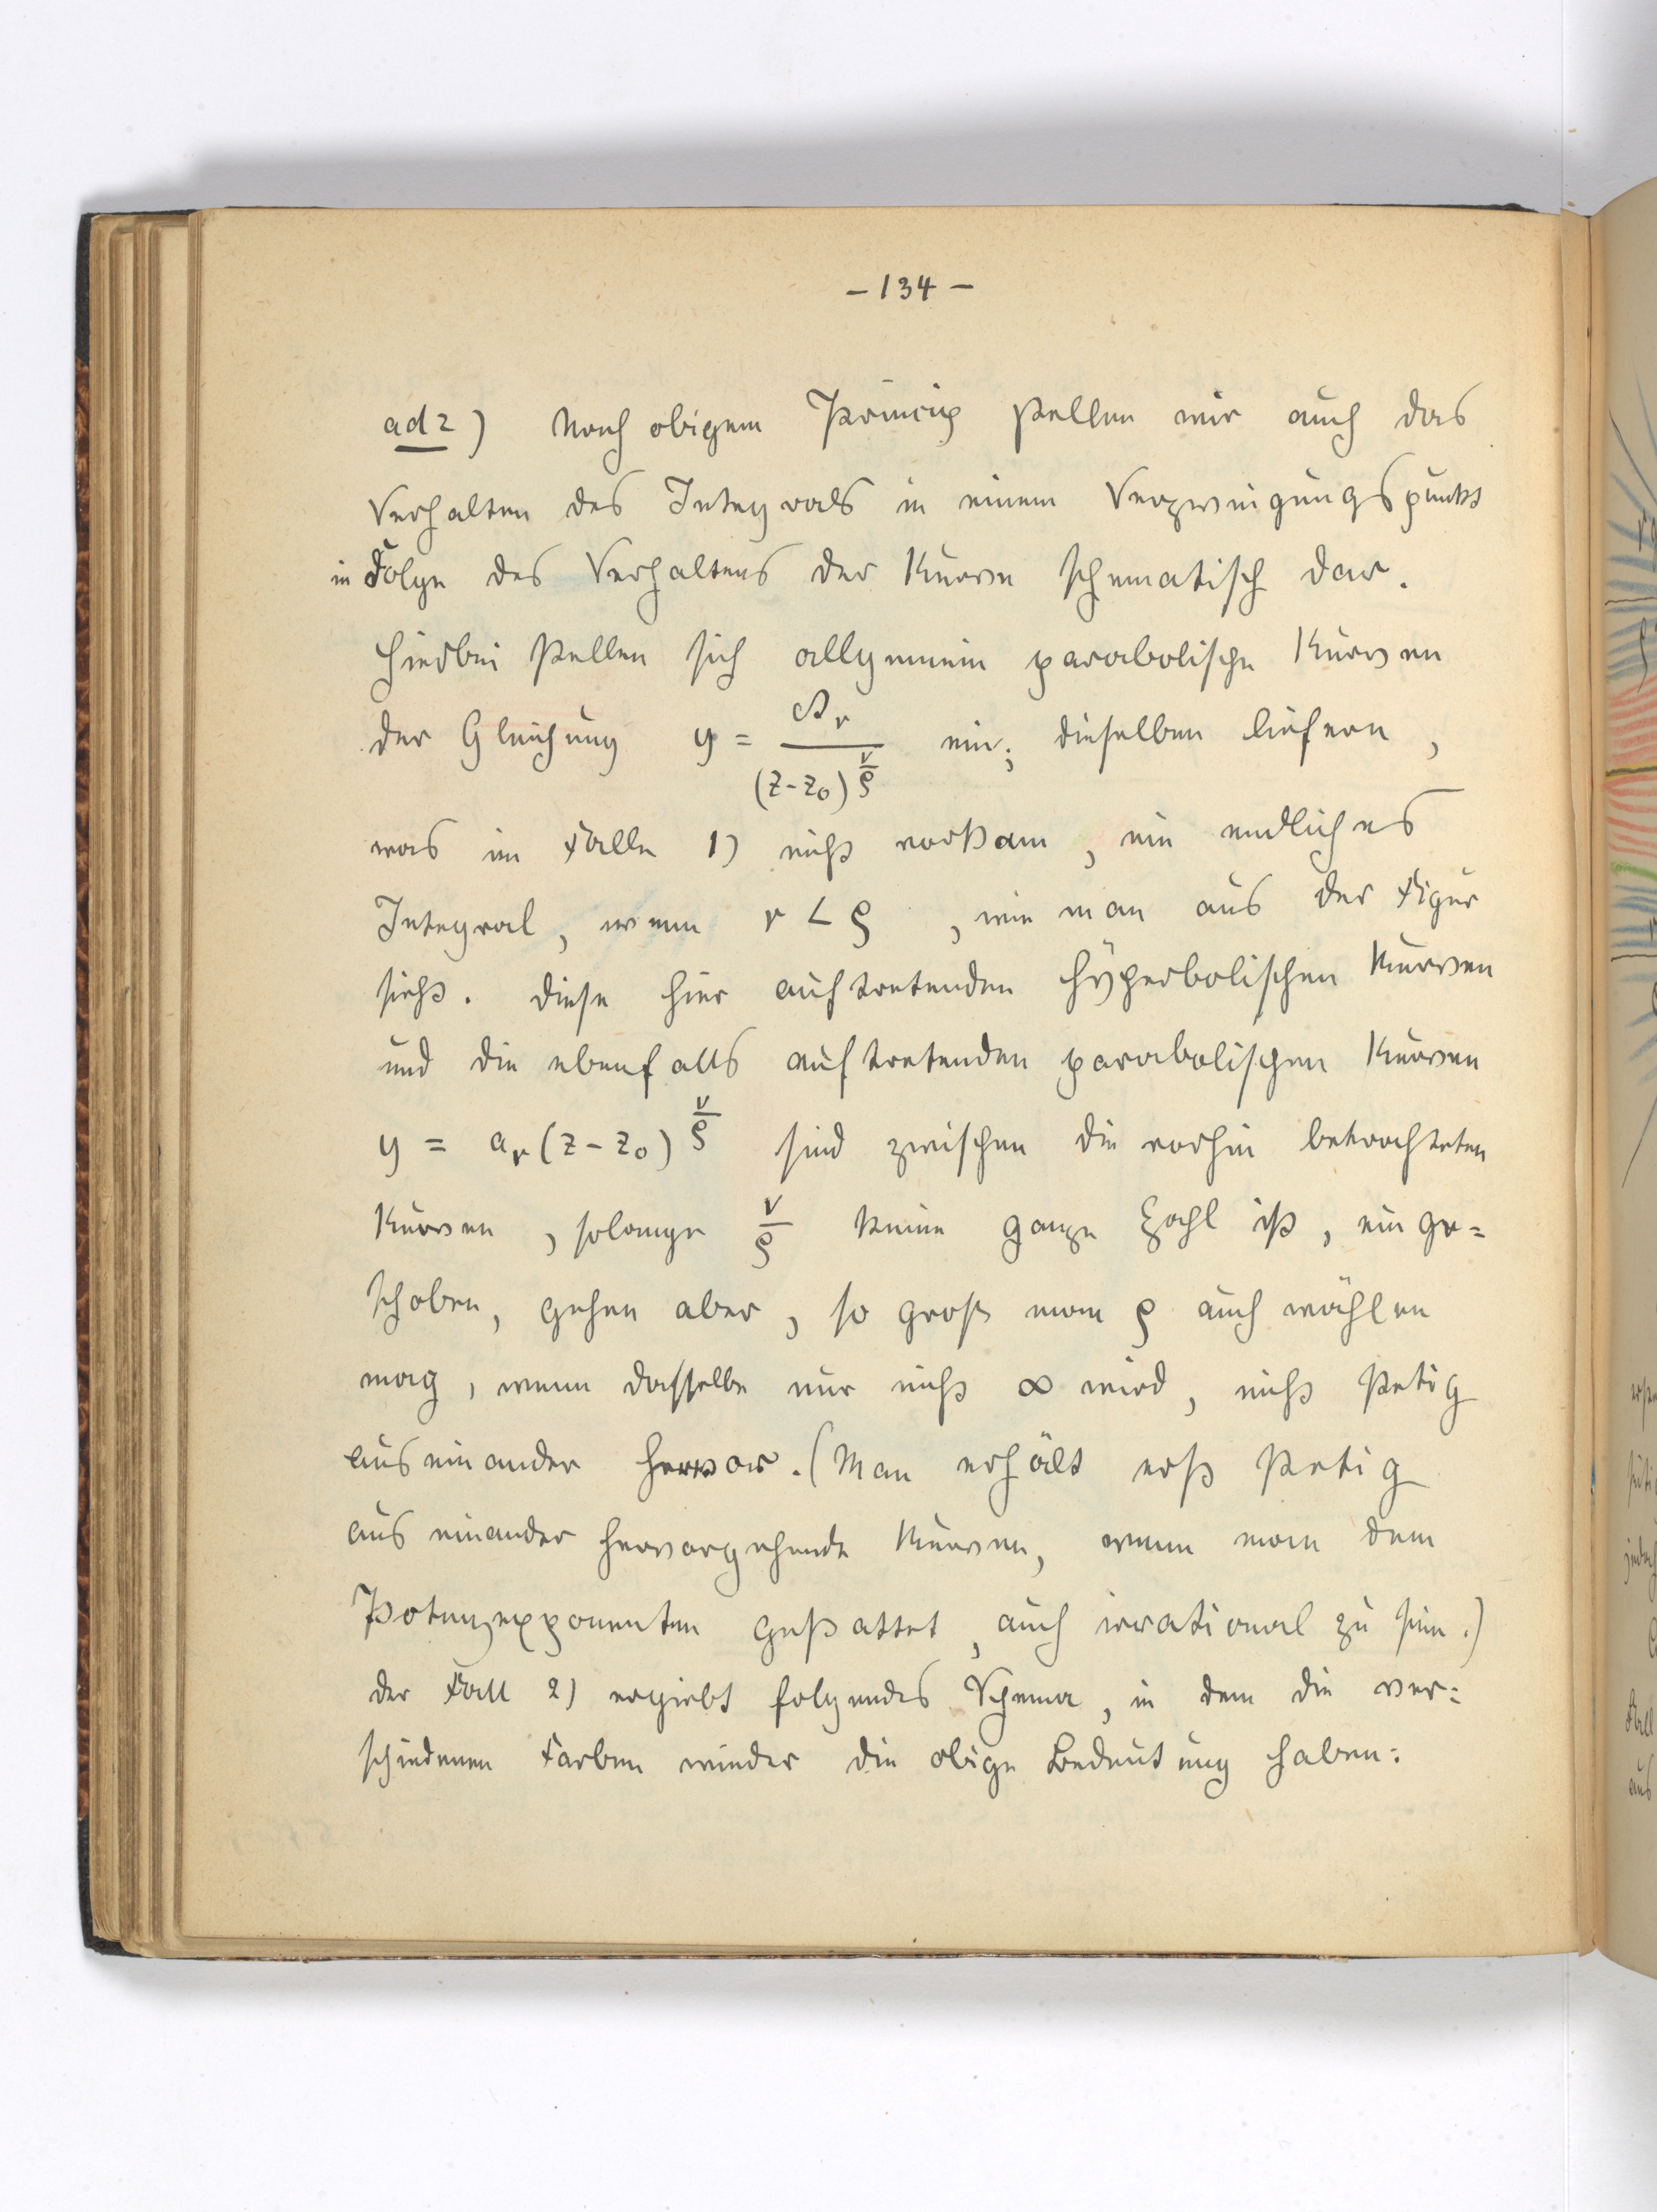 – 134 –
ad 2) Nach obigem Princip stellen wir auch das
Verhalten des Integrals in einem Verzweigungspunkt
in Folge des Verhaltens der Kurve schematisch dar.
Hierbei stellen sich allgemein parabolische Kurven
der Gleichung y = \frac{B_r}{(z-z_0)^{\frac{r}{ρ}}} ein; dieselben liefern,
was im Falle 1) nicht vorkam, ein endliches
Integral, wenn r < ρ, wie man aus der Figur
sieht. Diese hier auftretenden hyperbolischen Kurven
und die ebenfalls auftretenden parabolischen Kurven
y = a_r (z - z_0)^{\frac{r}{ρ}} sind zwischen die vorhin betrachteten
Kurven, solange \frac{r}{ρ} keine ganze Zahl ist, einge=
schoben, gehen aber, so groß man ρ auch wählen
mag, wenn dasselbe nur nicht ∞ wird, nicht stetig
auseinander hervor. (Man erhält erst stetig
auseinander hervorgehende Kurven, wenn man dem
Potenzexponenten gestattet, auch irrational zu sein.)
Der Fall 2) ergiebt folgendes Schema, in dem die ver=
schiedenen Farben wieder die obige Bedeutung haben: